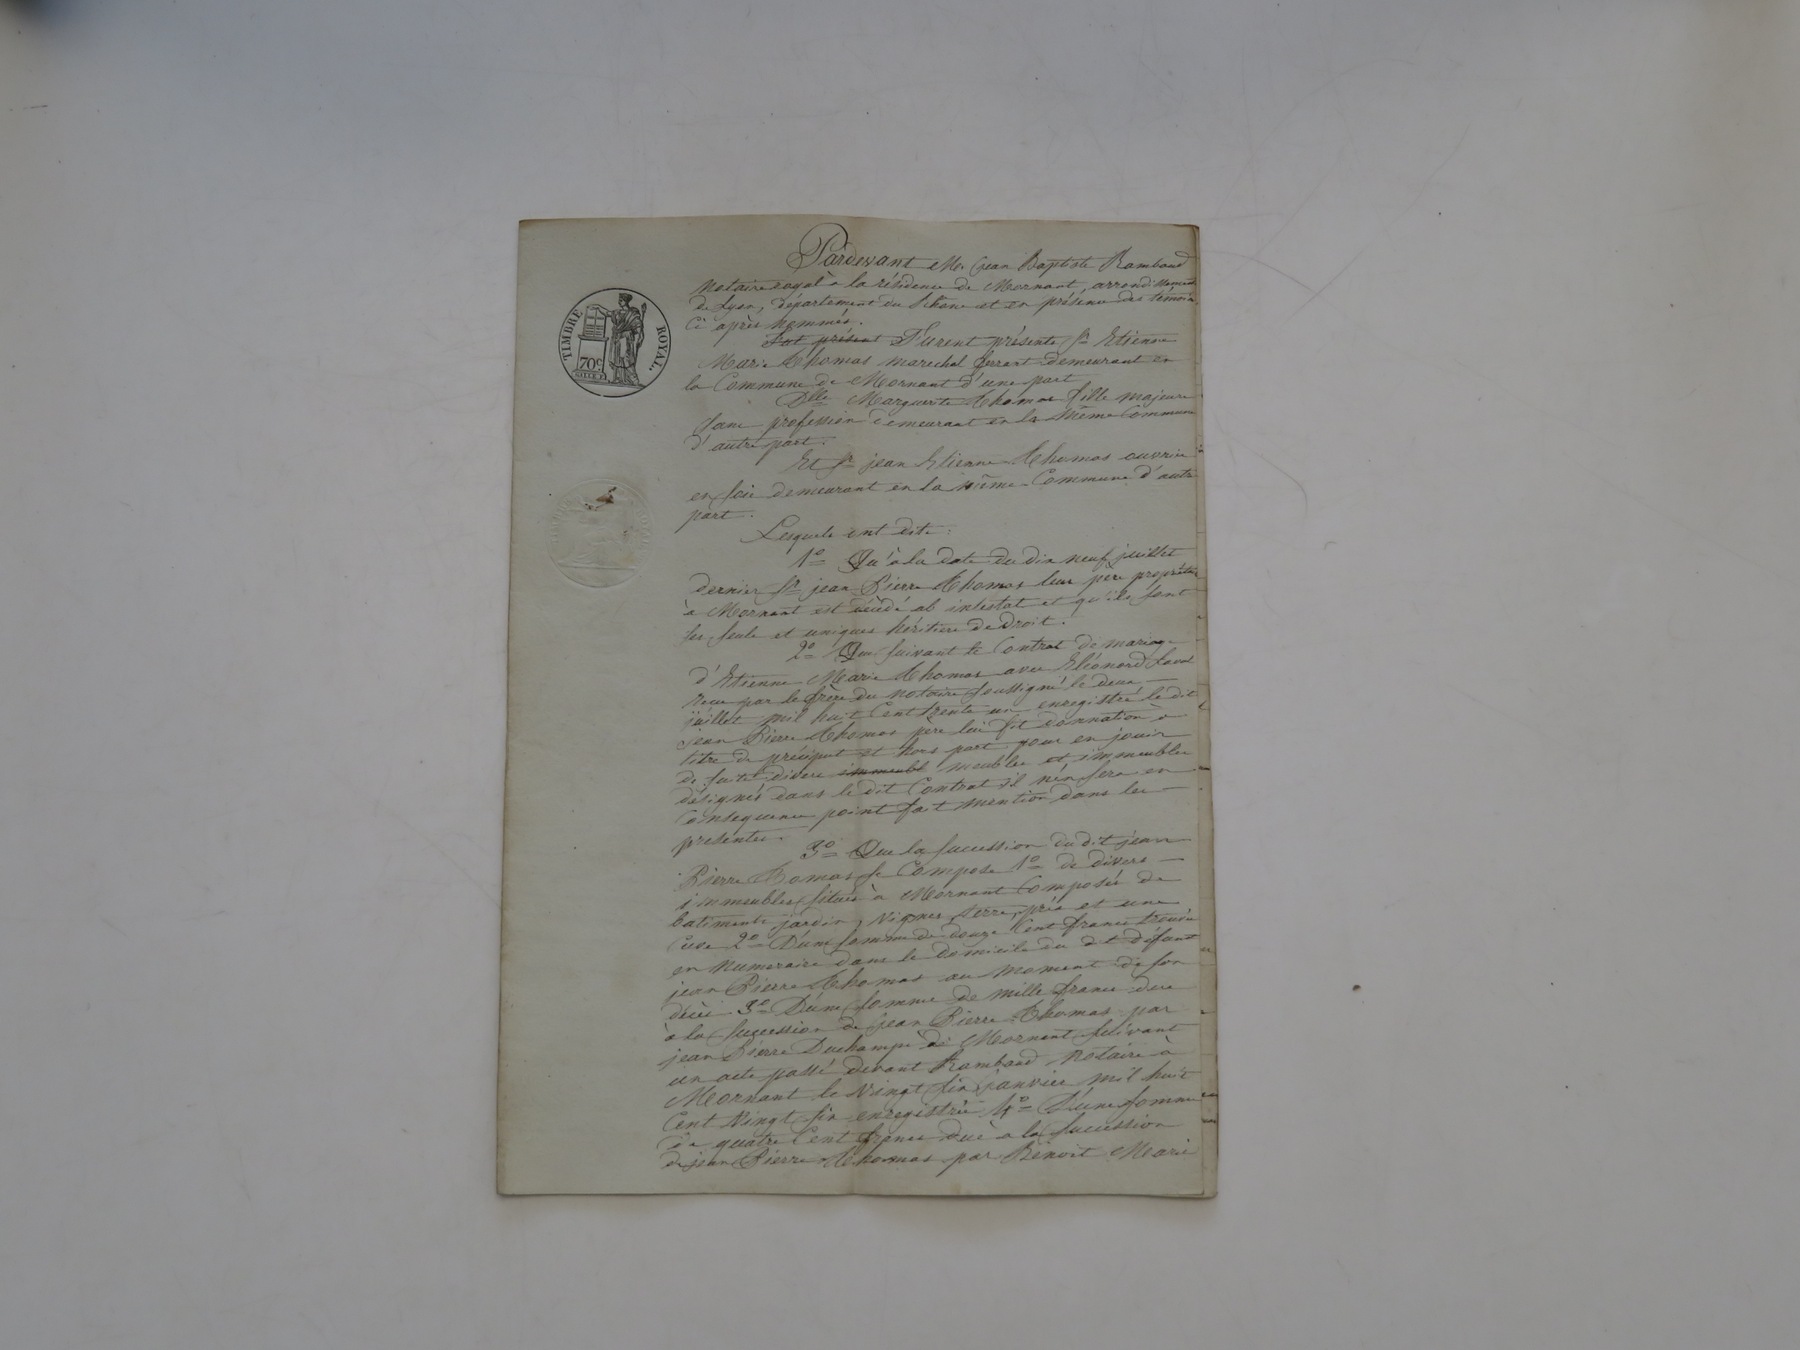 TIMBRE ROYAL.
70c.
Pardevant Me. jean Baptiste Rambaud
Notaire royal à la résidence de Mornant, arrondissement
de Lyon, département du Rhône et en présence des témoins
Ci après nommés.
Fut présent Furent présents Sr. Etienne
Marie Thomas marechal ferrant demeurant en
la Commune de Mornant d'une part
Dlle Marguerite Thomas fille majeure
sans profession demeurant en la même Commune
d'autre part.
Et Sr. jean Etienne Thomas ouvrier
en soie demeurant en la même Commune d'autre
part.
Lesquels ont dits :
1o Qu'à la date du dix neuf juillet
dernier Sr. jean Pierre Thomas leur père propriétaire
à Mornant est décédé ab intestat et qu'ils sont
ses seuls et uniques héritiers de droit.
2o Que suivant le Contrat de mariage
d'Etienne Marie Thomas avec Eléonord Laval
reçu par le frère du notaire soussigné le deux
juillet mil huit Cent trente un enregistré le dit
jean Pierre Thomas père lui fit donnation à
titre de préciput et hors part pour en jouir
de suite divers immeubl meubles et immeubles
désignés dans le dit Contrat il n'en sera en
Conséquence point fait mention dans les
presentes.
3o Que la succession du dit jean
Pierre Thomas se Compose 1o de divers
immeubles situés à Mornant Composés de
batiments jardin, vignes, terre, prés et une
Cuve 2o D'une somme de douze Cent francs trouvée
en numeraire dans le domicile du dit défunt
jean Pierre Thomas au moment de son
décès 3o D'une somme de mille francs due
à la succession de jean Pierre Thomas par
jean Pierre Duchamp de Mornant suivant
un acte passé devant Rambaud Notaire à
Mornant le vingt six janvier mil huit
Cent vingt six enregistrée 4o D'une somme
de quatre Cent francs due à la succession
de jean Pierre Thomas par Benoit Marie